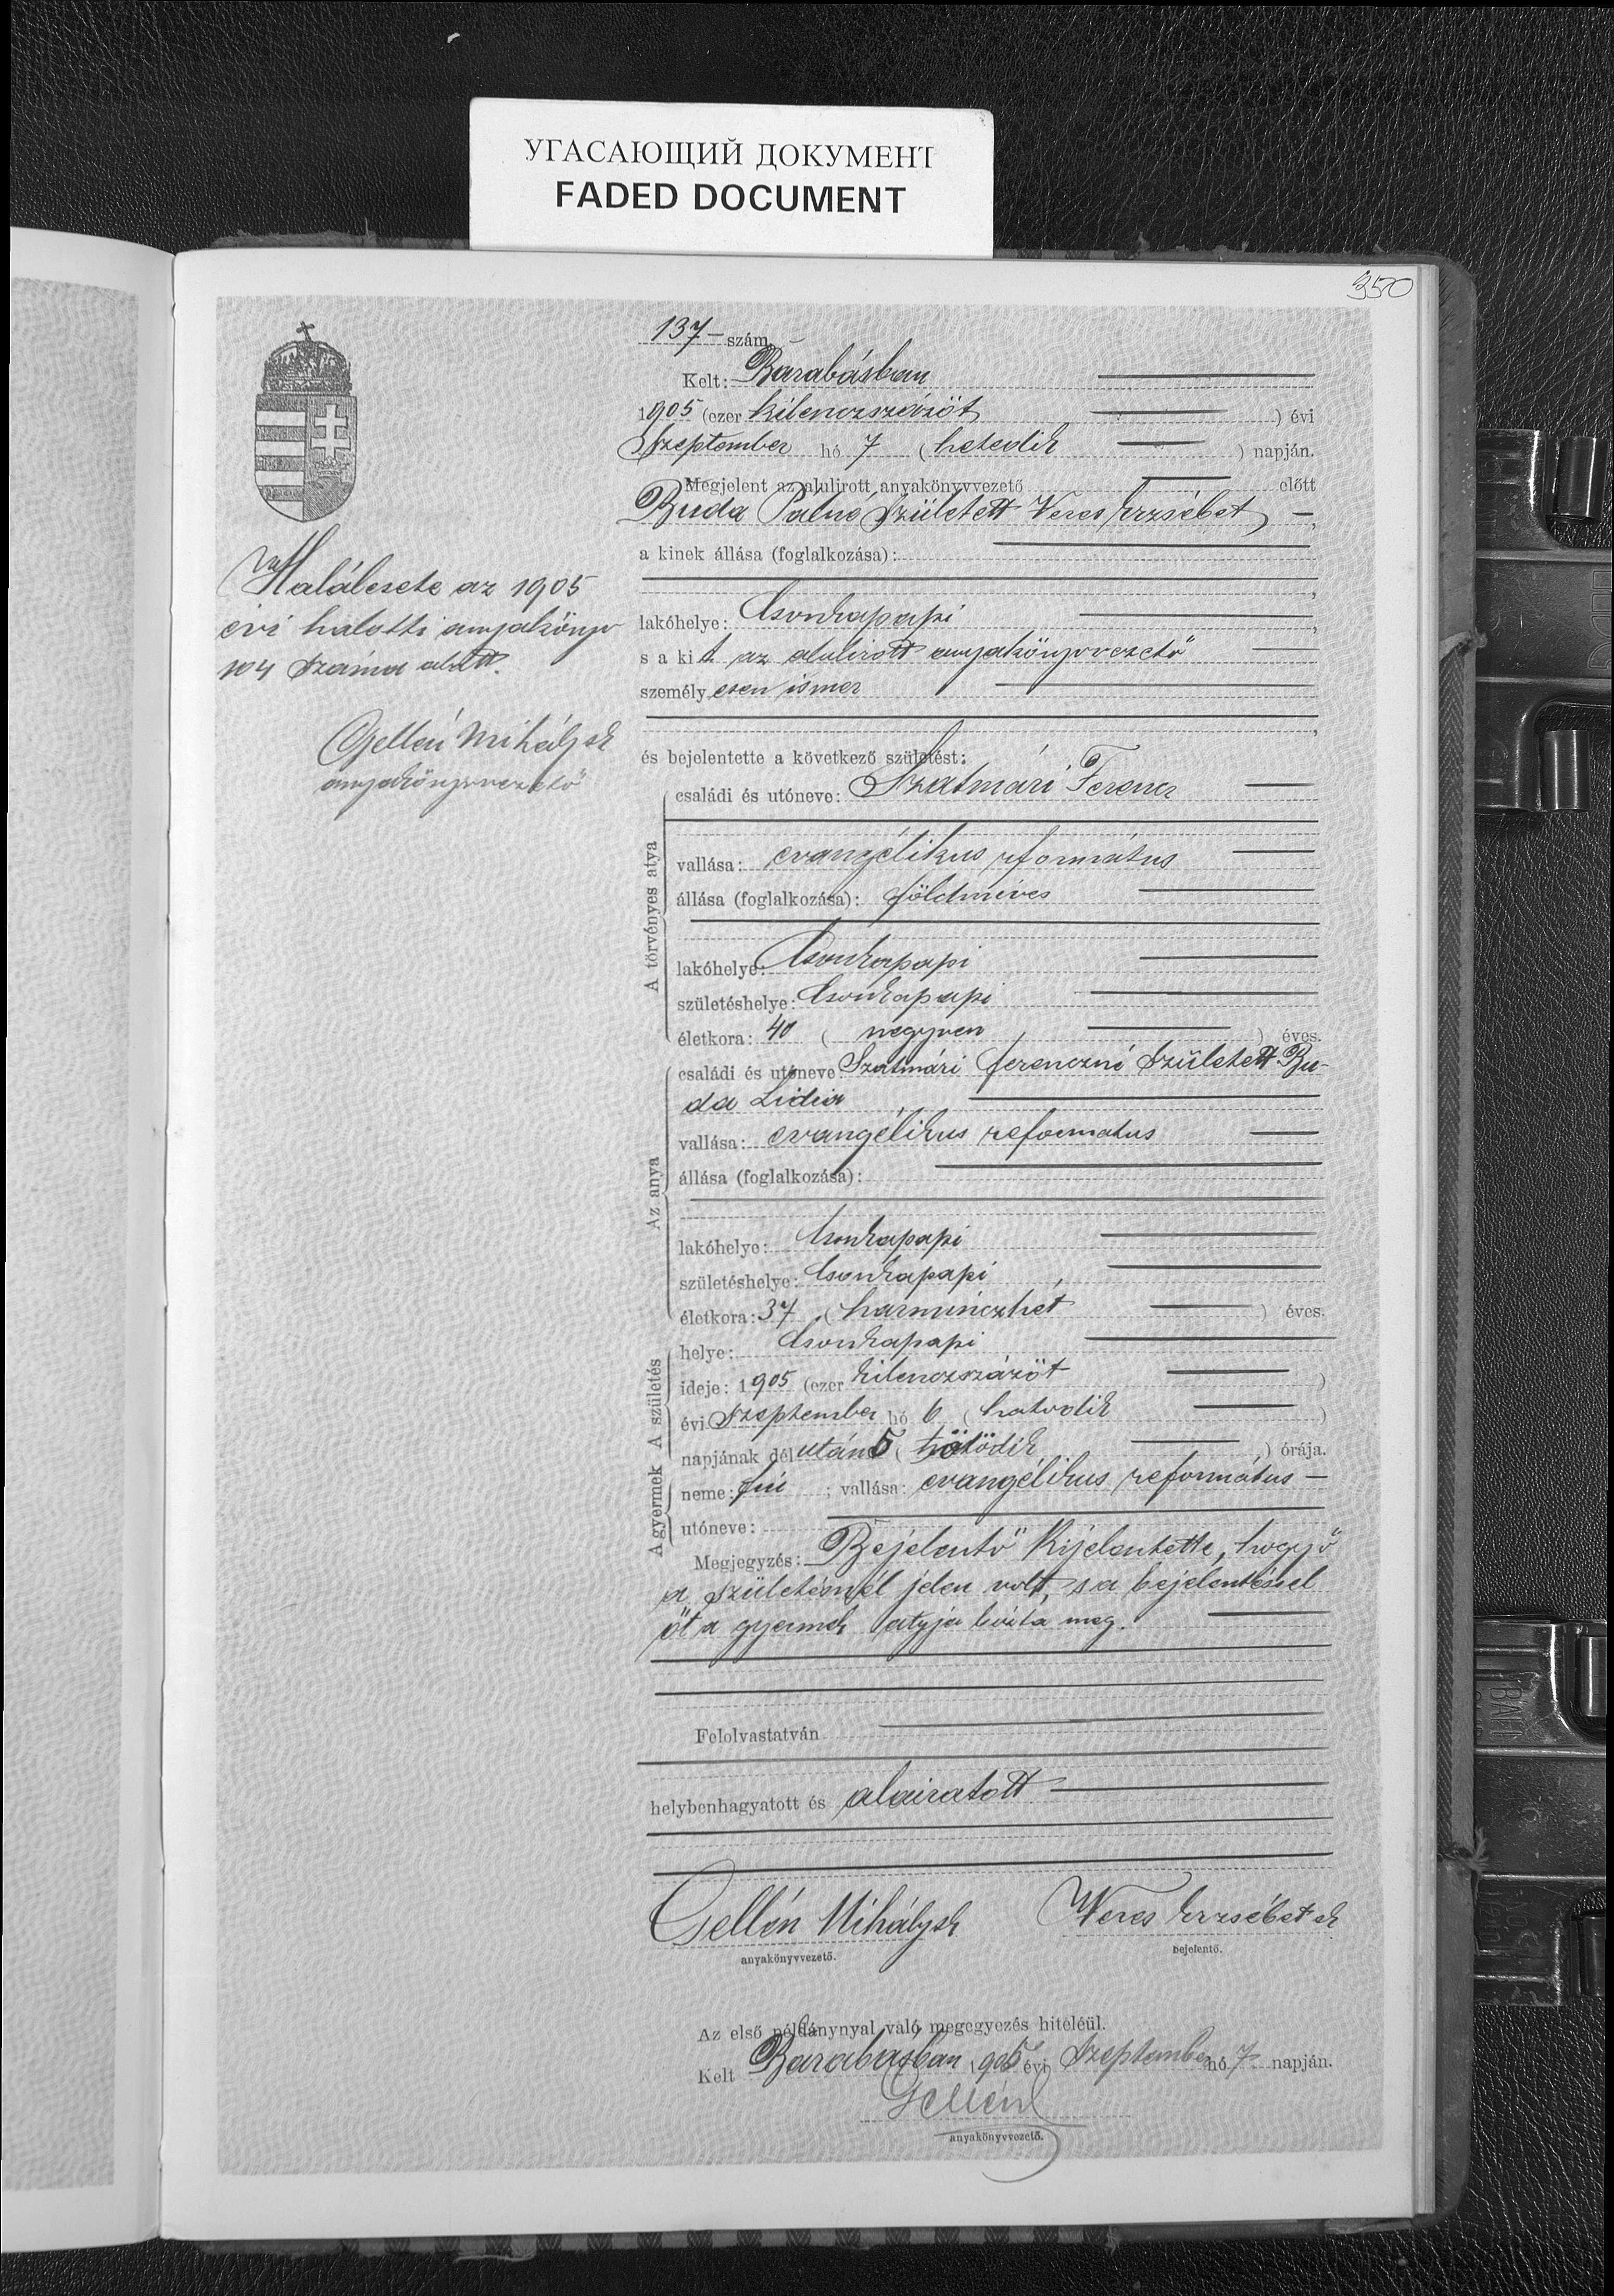 УГАСАЮЩИЙ ДОКУМЕНТ
FADED DOCUMENT
350
137 szám
Kelt: Barabásban
1905 (ezer kilenczszázöt ) évi
Szeptember hó 7 (hetedik ) napján.
Megjelent az alulirott anyakönyvvezető előtt
Buda Pálné született Veres Erzsébet,
a kinek állása (foglalkozása):
lakóhelye: Csonkapapi
s a kit az alulirott anyakönyvvezető
személyesen ismer
és bejelentette a következő születést:
A törvényes atya
családi és utóneve: Szatmári Ferencz
vallása: evangélikus református
állása (foglalkozása): földmíves
lakóhelye: Csonkapapi
születéshelye: Csonkapapi
életkora: 40 ( negyven ) éves.
Az anya
családi és utóneve: Szatmári Ferenczné született Bu-
da Lidia
vallása: evangélikus reformatus
állása (foglalkozása):
lakóhelye: Csonkapapi
születéshelye: Csonkapapi
életkora: 37 ( harminczhét ) éves.
A születés
helye: Csonkapapi
ideje: 1905 (ezer kilenczszázöt )
évi Szeptember hó 6 ( hatodik )
napjának délután 5 ( ötödik ) órája.
A gyermek
neme: fiú ; vallása: evangélikus református
utóneve:
Megjegyzés: Bejelentő kijelentette, hogy ő
a születésnél jelen volt, s a bejelentéssel
őt a gyermek atyja bízta meg.
Felolvastatván
helybenhagyatott és aláiratott
Gellén Mihály sk
anyakönyvvezető.
Veres Erzsébet sk
bejelentő.
Az első példánynyal való megegyezés hiteléül.
Kelt Barabásban 1905 évi Szeptember hó 7 napján.
Gellén
anyakönyvvezető.
Halálesete az 1905
évi halotti anyakönyv
104 száma alatt.
Gellén Mihály sk
anyakönyvvezető